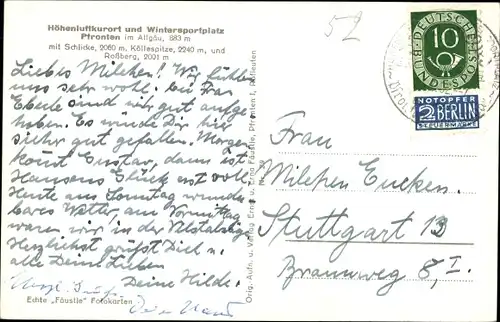 Höhenluftkurort und Wintersportplatz
Pfronten im Allgäu, 883 m
mit Schlicke, 2060 m, Köllespitze, 2240 m, und
Roßberg, 2001 m
52
Liebes Milchen! Wir fühlen
uns sehr wohl. Bei Frau
Eberle sind wir gut aufge-
hoben. Es würde Dir hier
sehr gut gefallen. Morgen
kommt Gustav, dann ist
Hansens Glück voll.
Heute am Sonntag wunder-
bares Wetter, am Vormittag
waren wir in der
Herzlichst grüßt Dich u.
alle Deine Lieben
Deine Hilde.
Herzl.
Dein
Echte „Fäustle" Fotokarten
Orig. Aufn. u. Verlag Ernst u. Erna Fäustle, Pfronten
DEUTSCHE
BUNDESPOST
10
NOTOPFER
2 BERLIN
STEUERMARKE
Frau
Milchen Eucken
Stuttgart 13
Braunweg 8, I.